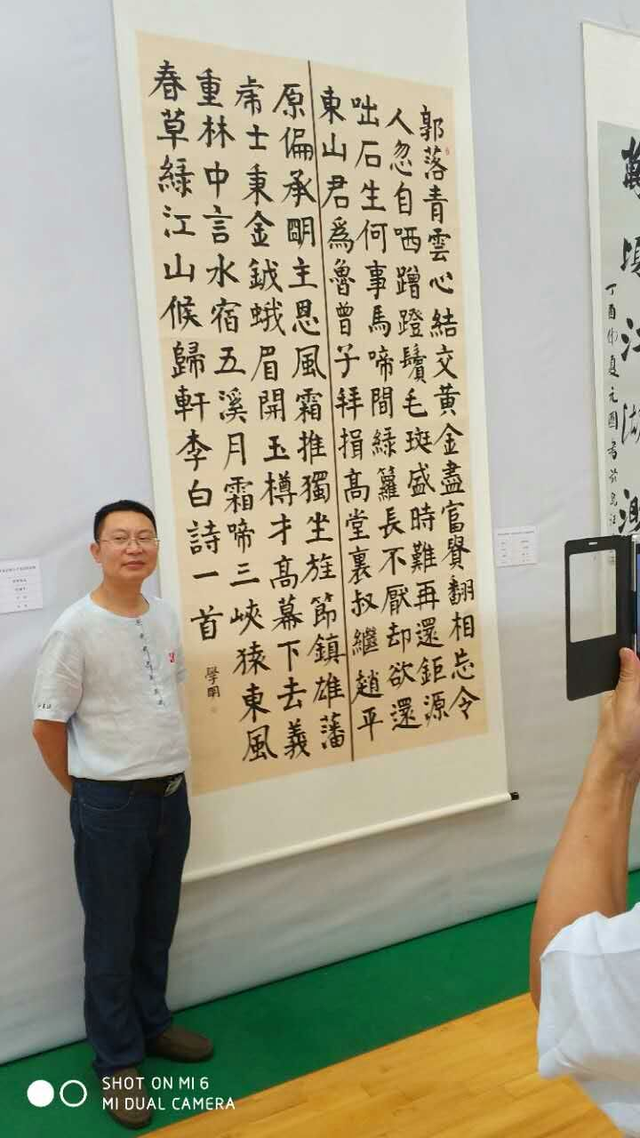 郭落青雲心結交黃金盡富貴翻相忘令
人忽自哂蹭蹬鬢毛斑盛時難再還鉅源
咄石生何事馬啼間綠蘿長不厭却欲還
東山君為魯曾子拜揖高堂裏叔繼趙平
原偏承明主恩風霜推獨坐旌節鎮雄藩
虎士秉金鉞蛾眉開玉樽才高幕下去義
重林中言水宿五溪月霜啼三峽猿東風
春草綠江山候歸軒李白詩一首
萬頃江湖
丁酉仲夏
SHOT ON MI 6
MI DUAL CAMERA